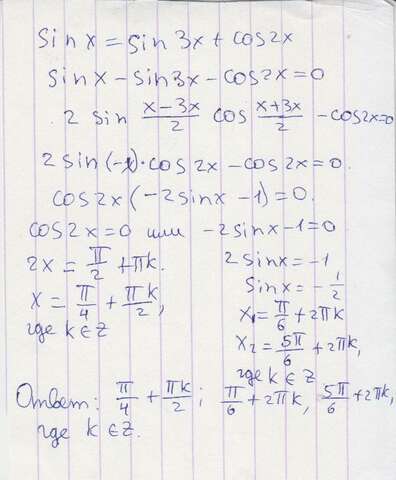 sin x = sin 3x + cos2x
sin x − sin3x − cos2x = 0
2 sin (x−3x)/2 cos (x+3x)/2 − cos2x=0
2sin(−x)·cos2x − cos2x = 0.
cos2x(−2sinx −1) = 0.
cos2x = 0 или −2sinx−1=0
2x = π/2 + πk.
x = π/4 + πk/2,
где k ∈ Z
2sinx = −1
sinx = −1/2
x₁= π/6 + 2πk
x₂= 5π/6 + 2πk,
где k ∈ Z
Ответ: π/4 + πk/2 ; π/6 + 2πk, 5π/6 + 2πk,
где k ∈ Z.